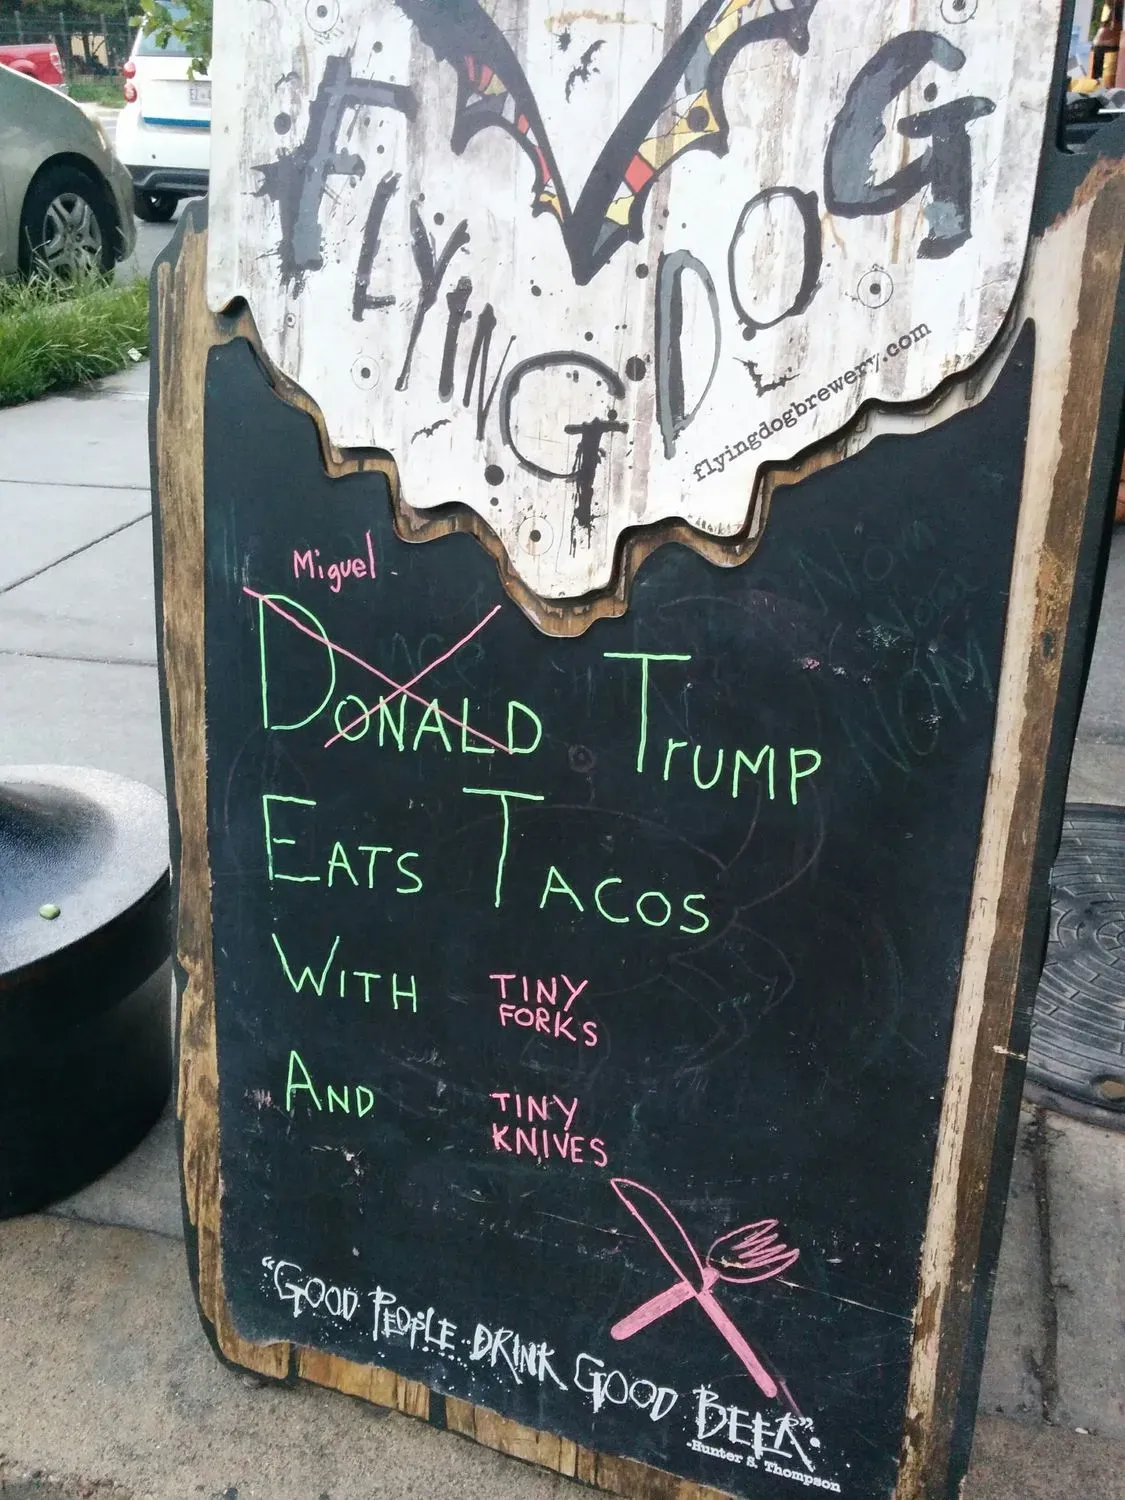 FLYING DOG
flyingdogbrewery.com
Nom
Nom
NOM
Miguel
DONALD TrUMP
EATS TACOS
WITH TINY FORKS
AND TINY KNIVES
"GOOD PEOPLE DRINK GOOD BEER".
-Hunter S. Thompson